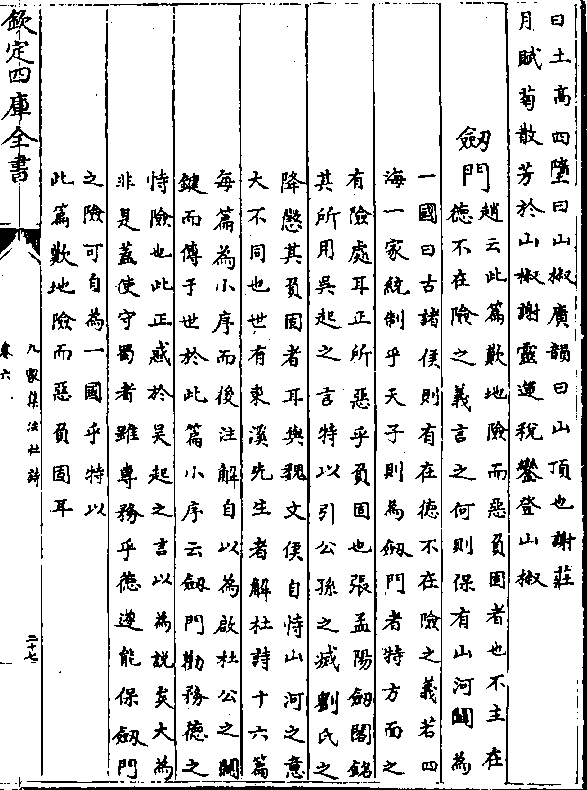 曰土高四墮曰山椒廣韻曰山頂也謝莊
月賦菊散芳於山椒謝靈運稅鑾登山椒
劒門
趙云此篇歎地險而惡負固者也不主在
德不在險之義言之何則保有山河闢為
一國曰古諸侯則有在德不在險之義若四
海一家統制乎天子則為劒門者特方面之
有險處耳正所惡乎負固也張孟陽劒閣銘
其所用吳起之言特以引公孫之滅劉氏之
降憋其負固者耳與魏文侯自恃山河之意
大不同也世有東溪先生者解杜詩十六篇
每篇為小序而後注解自以為啟杜公之關
鍵而傳于世於此篇小序云劒門勸務德之
恃險也此正惑於吳起之言以為說矣大為
非是蓋使守蜀者雖專務乎德遂能保劒門
之險可自為一國乎特以
此篇歎地險而惡負固耳
欽定四庫全書
九家集注杜詩
卷六
二十七